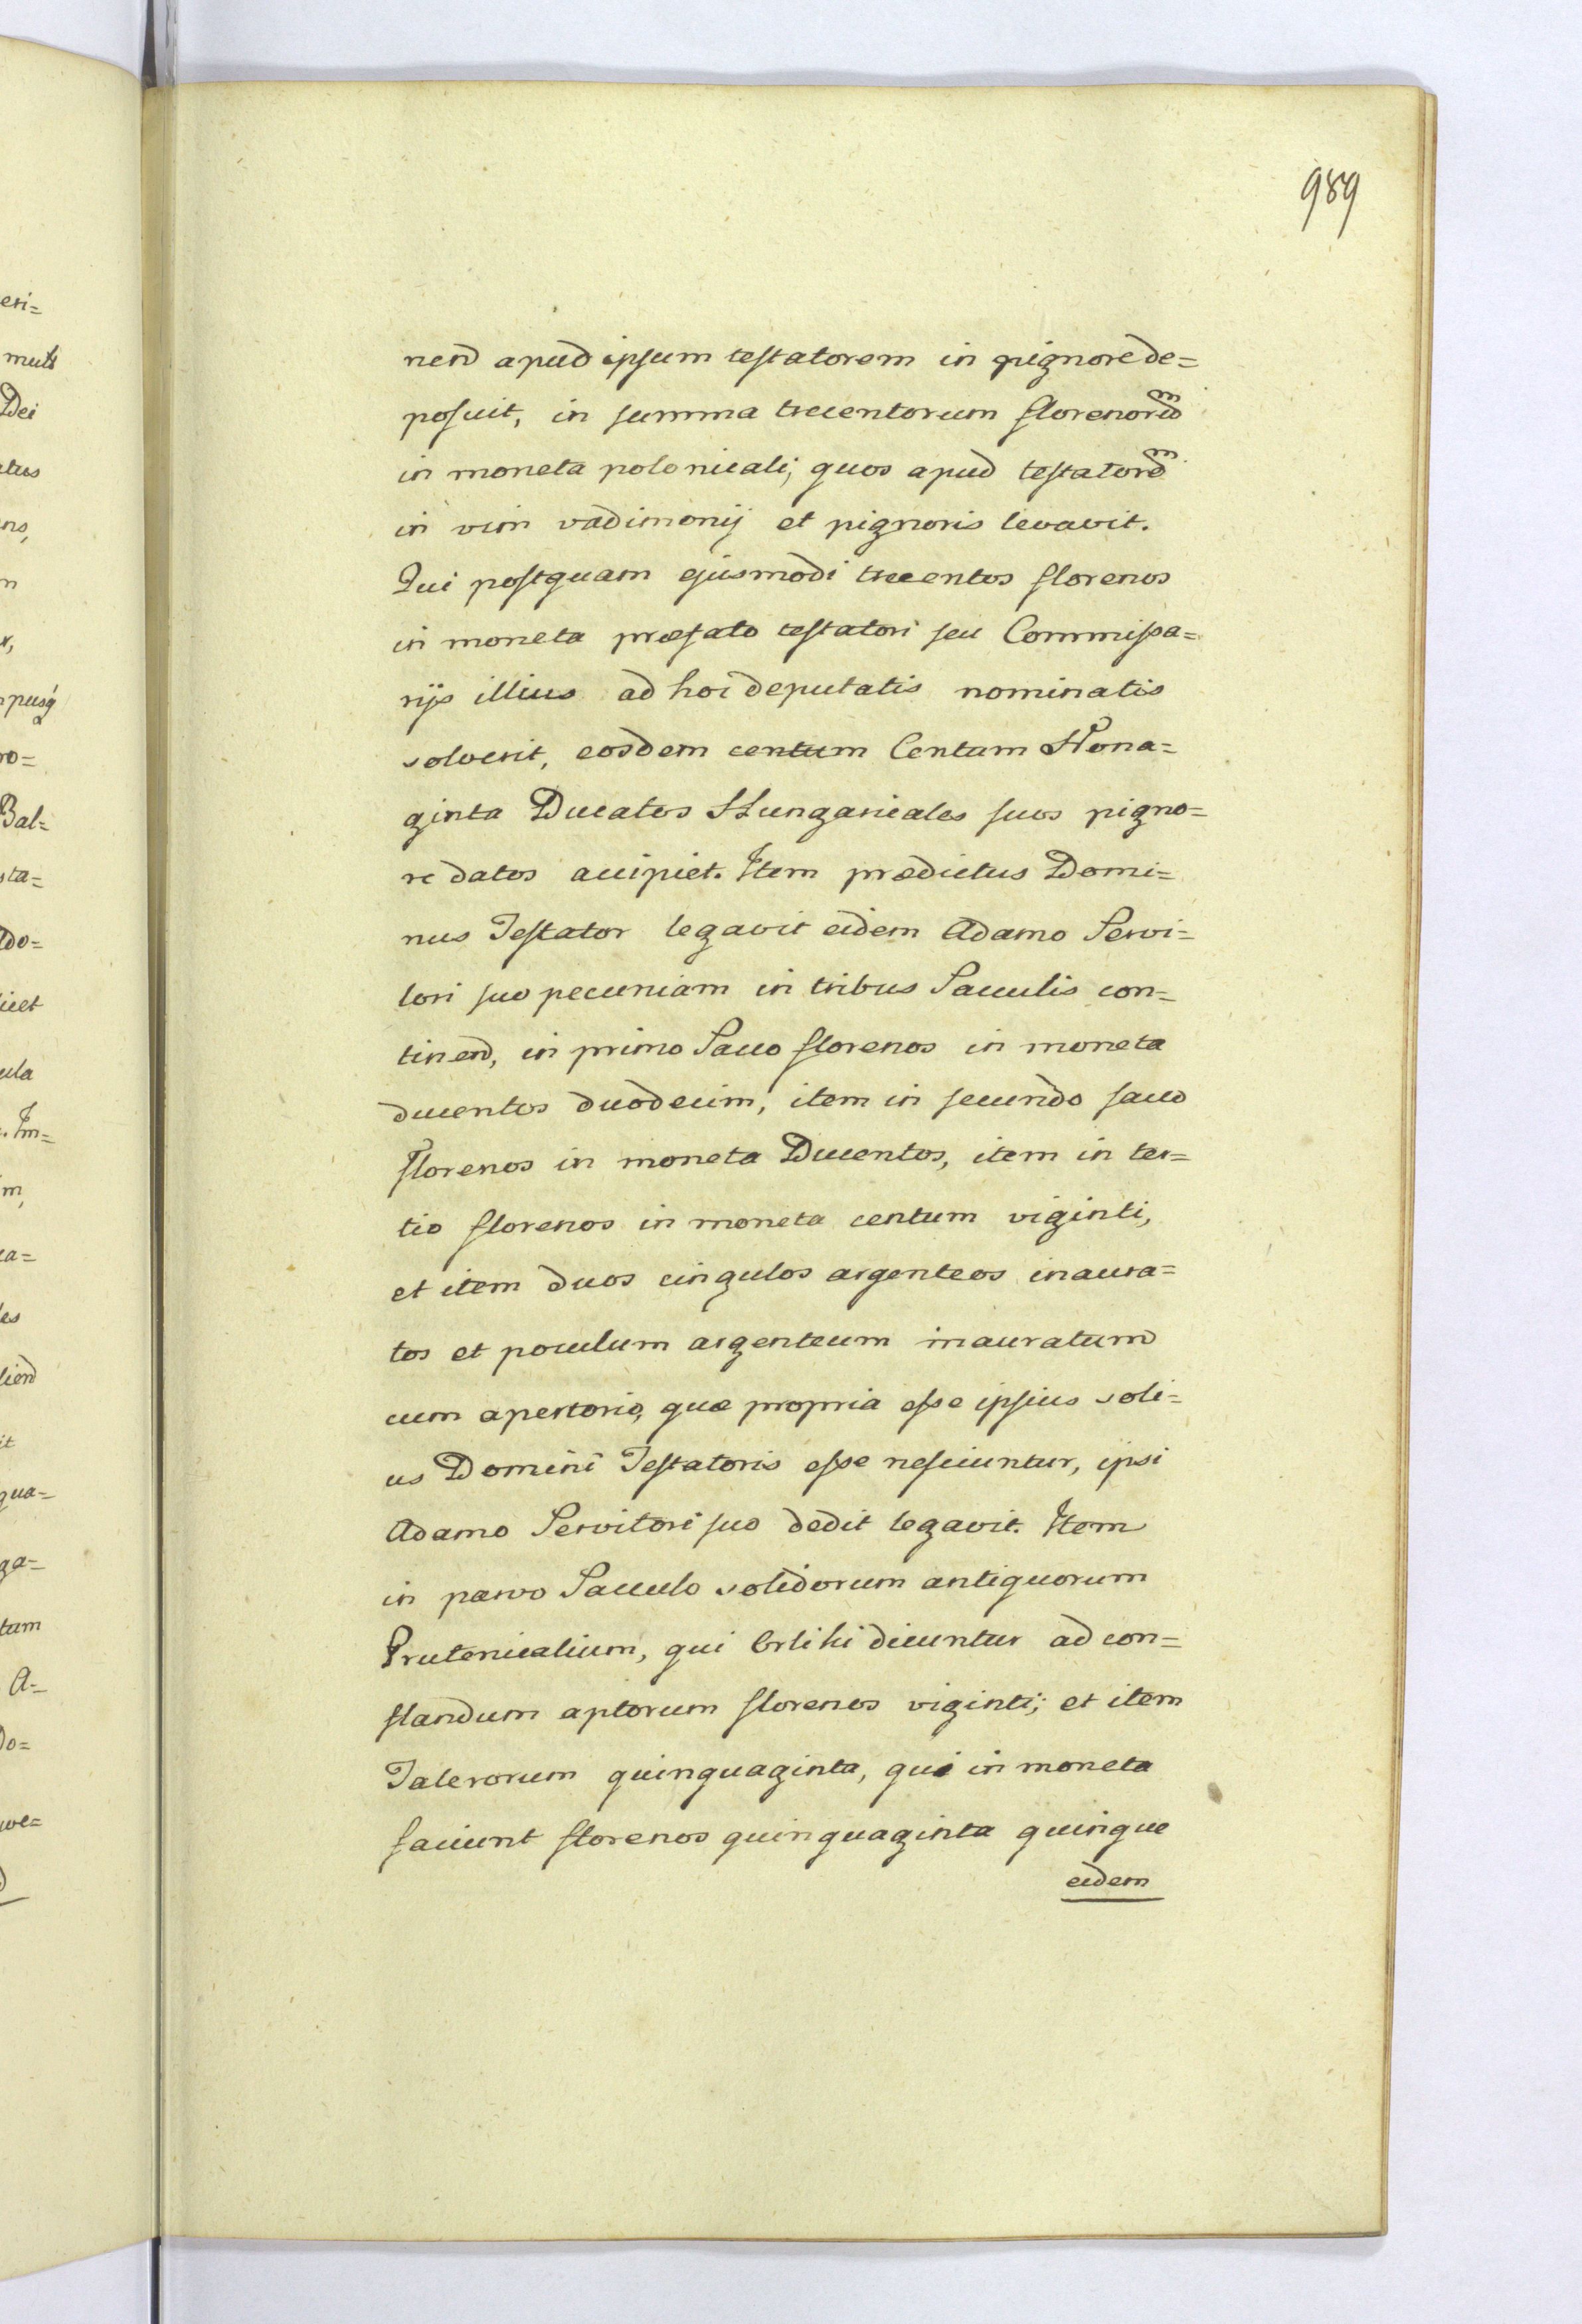 989
nend apud ipsum testatorem in pignore de=
posuit, in summa trecentorum florenorum
in moneta polonicali, quos apud testatorem
in vim vadimonij et pignoris levavit.
Qui postquam ejusmodi trecentos florenos
in moneta praefato testatori seu Commissa=
rijs illius ad hoc deputatis nominatis
solverit, eosdem centum Centum Nona=
ginta Ducatos Hungaricales suos pigno=
re datos accipiet. Item praedictus Domi=
nus Testator legavit eidem Adamo Servi=
tori suo pecuniam in tribus Sacculis con=
tinend, in primo Sacco florenos in moneta
ducentos duodecim, item in secundo sacco
florenos in moneta Ducentos, item in ter=
tio florenos in moneta centum viginti,
et item duos cingulos argenteos inaura=
tos et poculum argenteum inauratum
cum apertorio, quae propria esse ipsius soli=
us Domini Testatoris esse nesciuntur, ipsi
Adamo Servitori suo dedit legavit. Item
in parvo Sacculo solidorum antiquorum
Prutenicalium, qui Orliki dicuntur ad con=
flandum aptorum florenos viginti; et item
Talerorum quinquaginta, qui in moneta
faciunt florenos quinquaginta quinque
eidem
eri=
Dei
ns,
x,
ro=
Bal=
sta=
ado=
. Im=
m,
ca=
les
it
qua=
ga=
tam
A=
do=